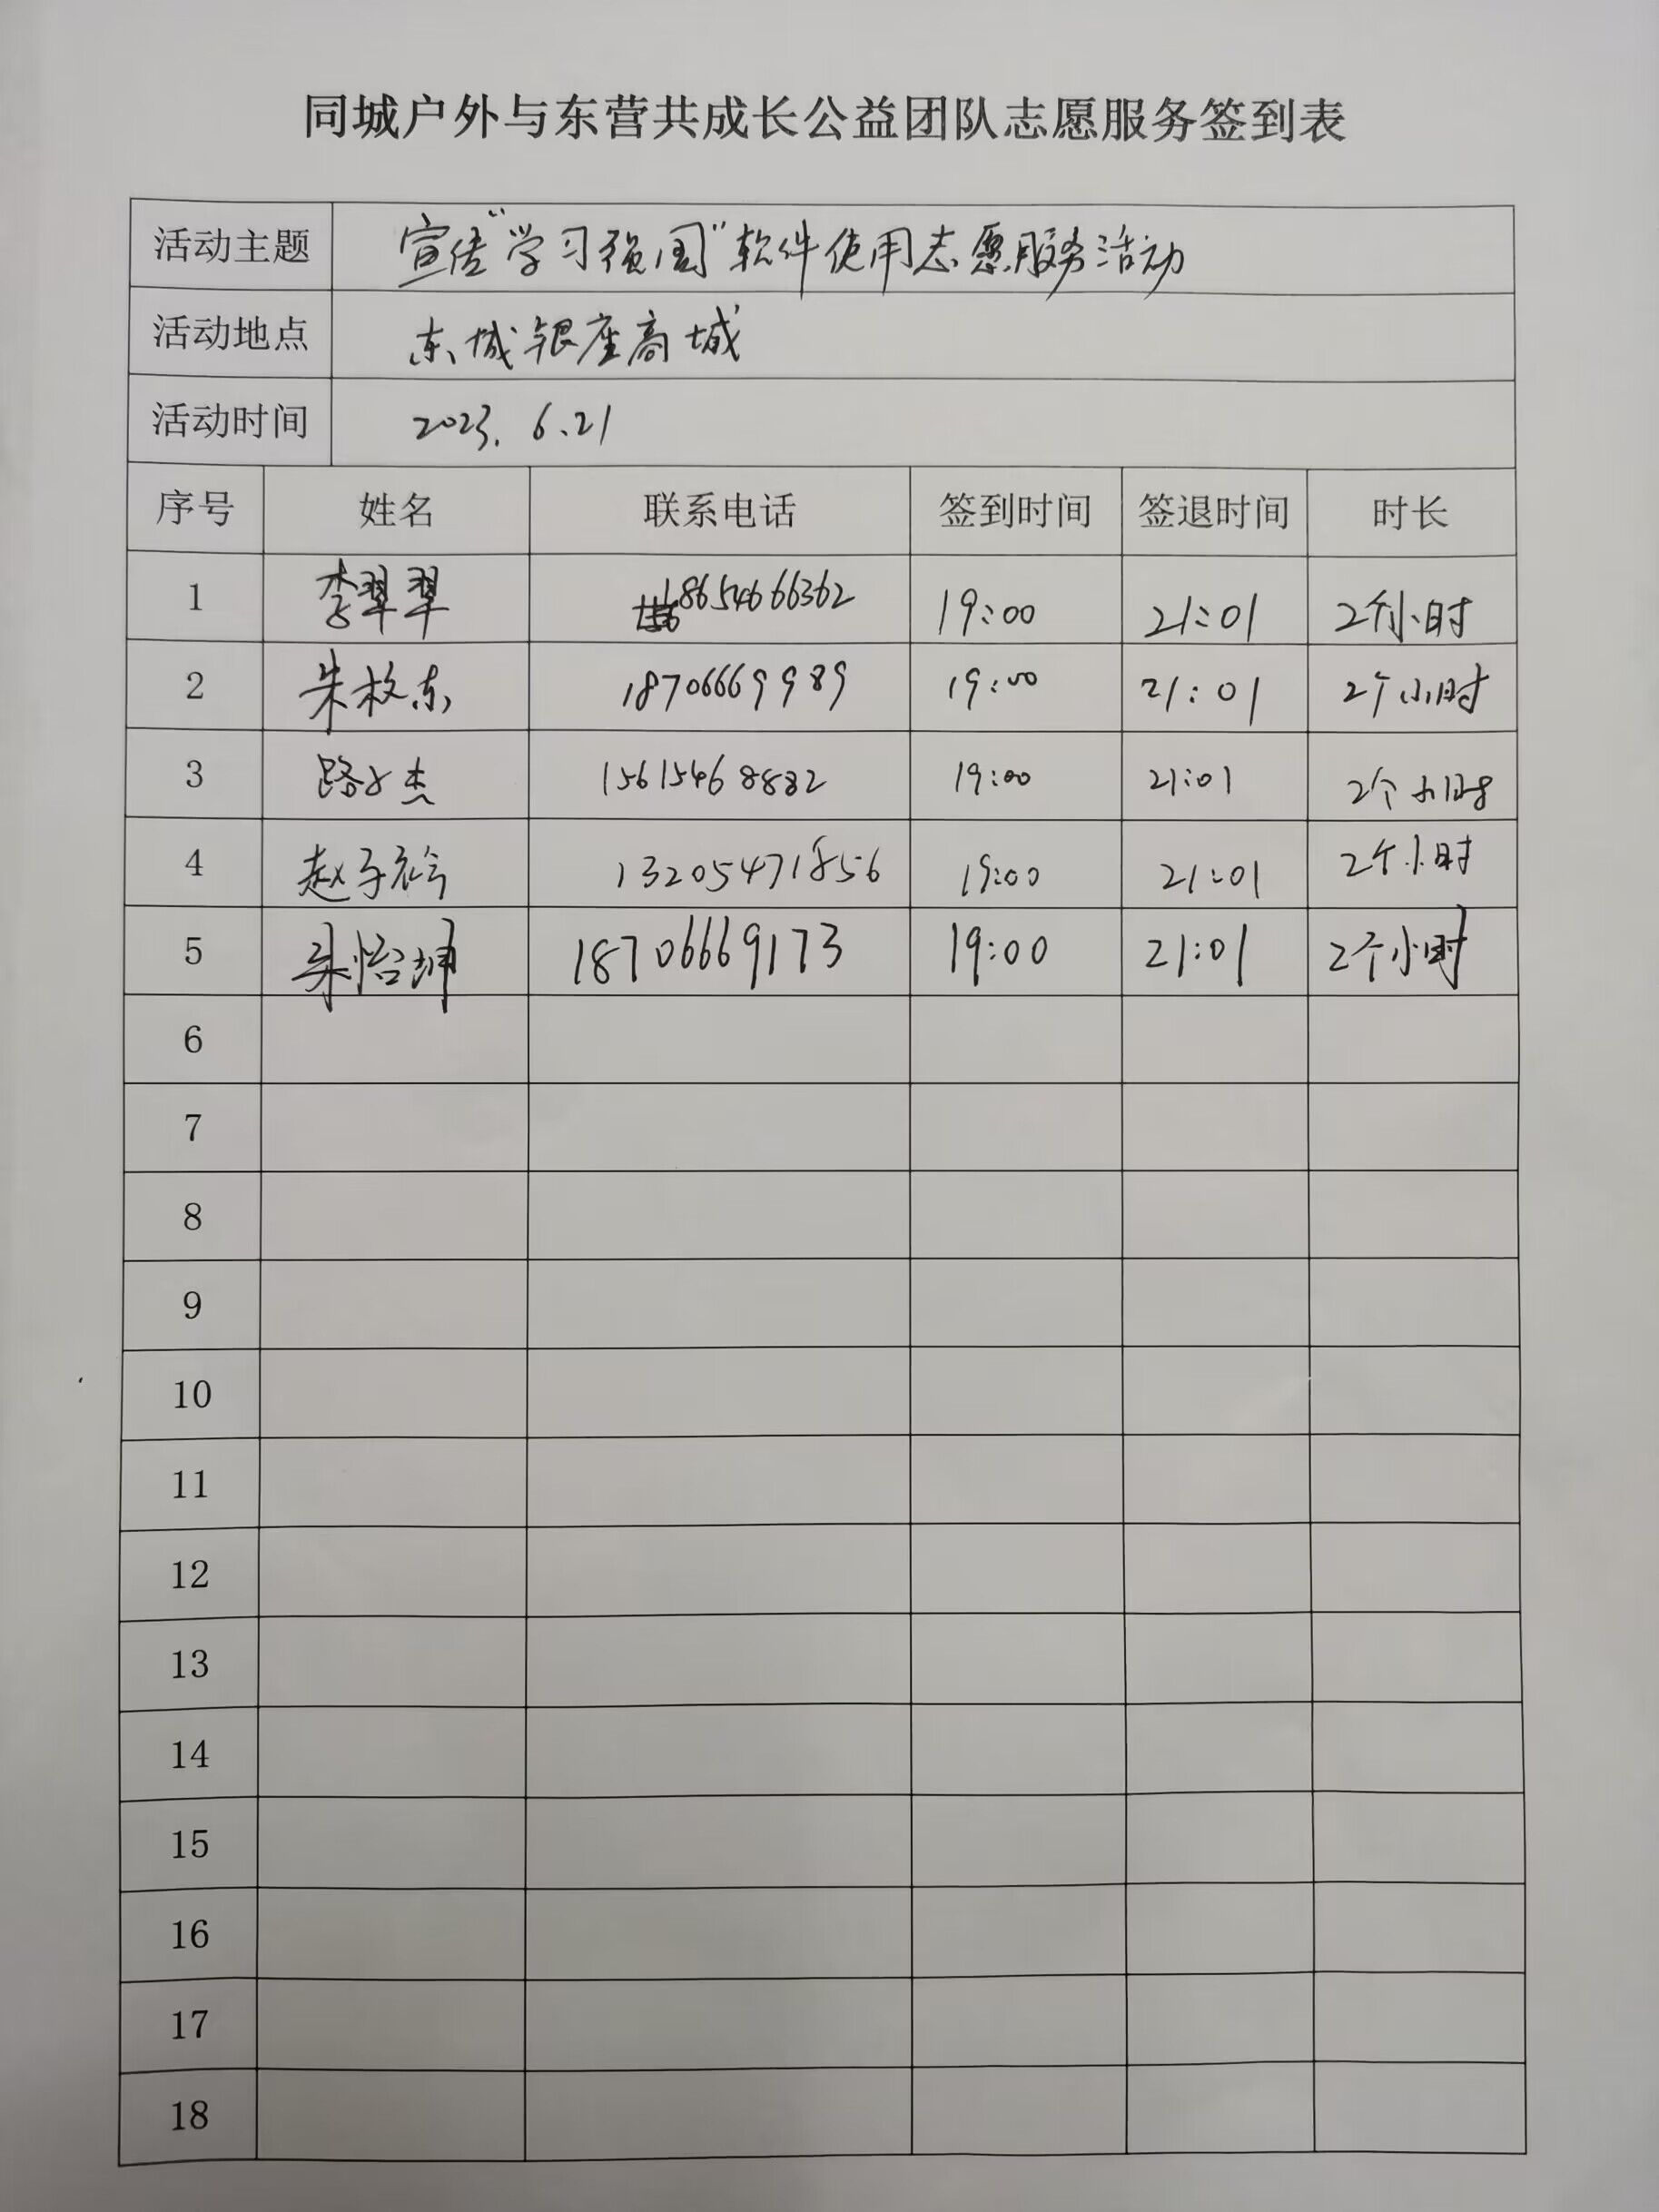 同城户外与东营共成长公益团队志愿服务签到表
活动主题 宣传“学习强国”软件使用志愿服务活动
活动地点 东城银座商城
活动时间 2023.6.21
序号 姓名 联系电话 签到时间 签退时间 时长
1 李翠翠 18654666362 19:00 21:01 2个小时
2 朱枚东 18706669989 19:00 21:01 2个小时
3 路 杰 15615468882 19:00 21:01 2个小时
4 赵子衿 13205471856 19:00 21:01 2个小时
5 朱怡坤 18706669173 19:00 21:01 2个小时
6
7
8
9
10
11
12
13
14
15
16
17
18